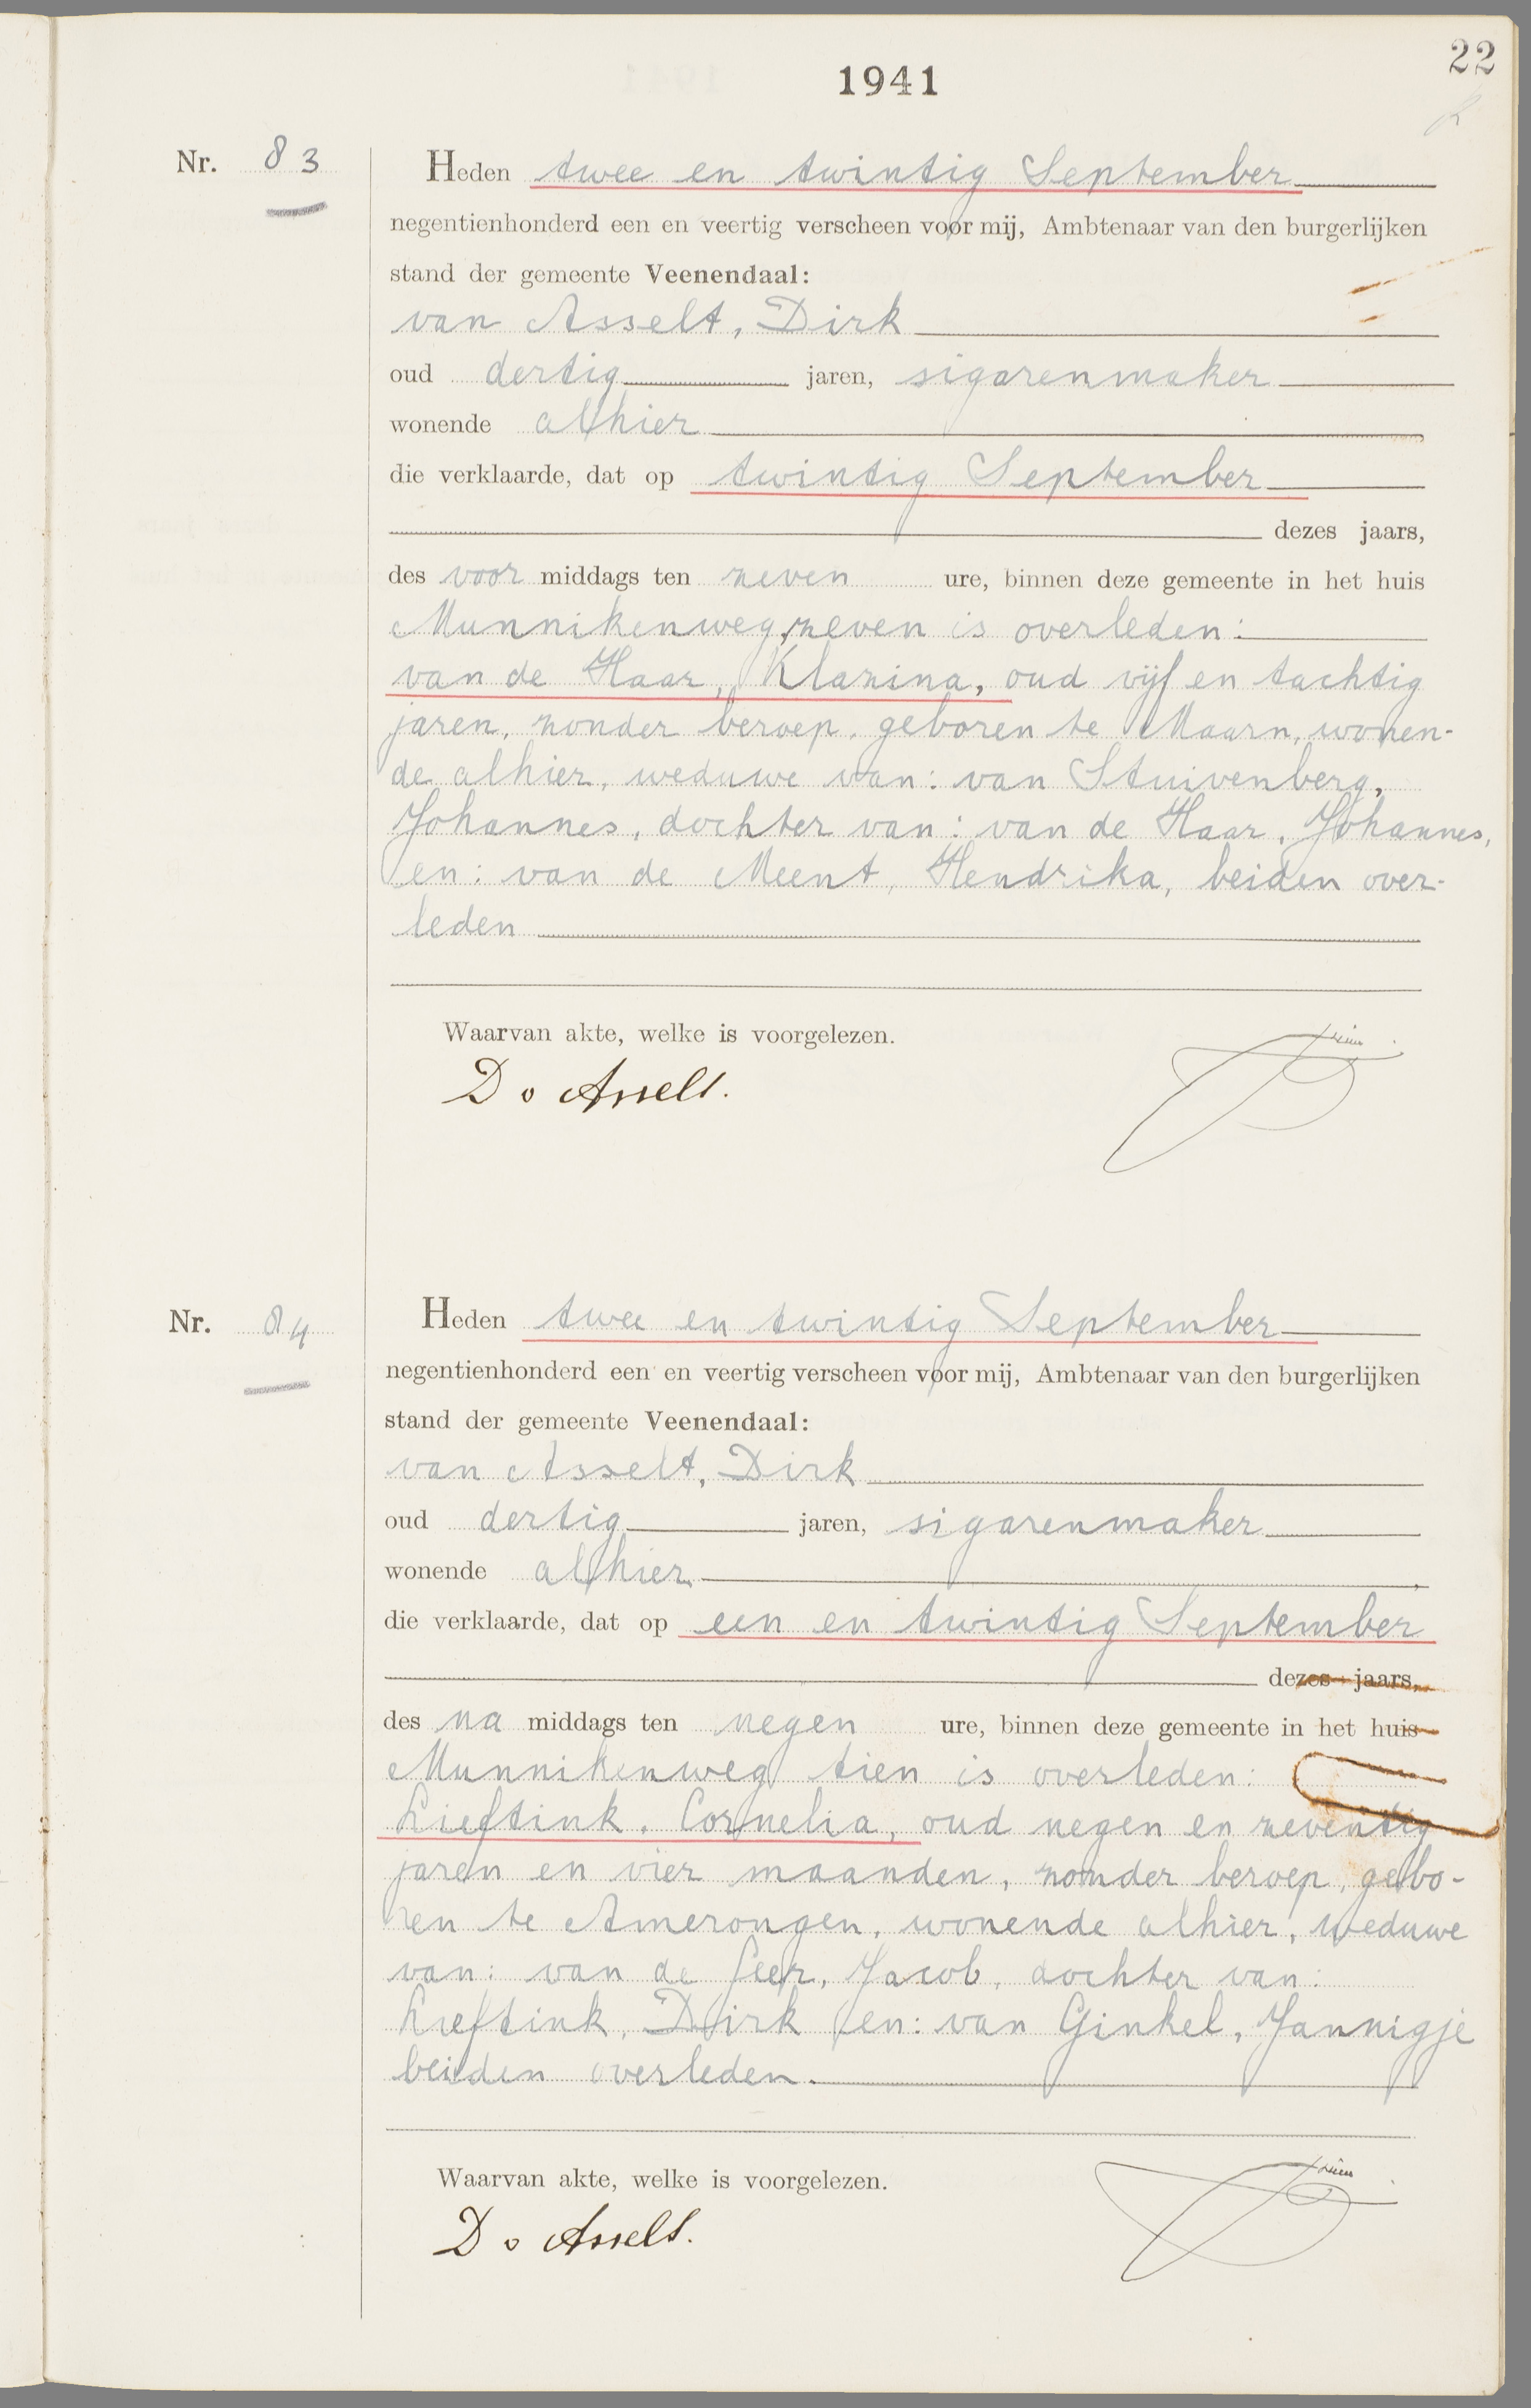 22
1941
Nr. 83
Heden twee en twintig September
negentienhonderd een en veertig verscheen voor mij, Ambtenaar van den burgerlijken
stand der gemeente Veenendaal:
van Asselt, Dirk
oud dertig jaren, sigarenmaker
wonende alhier
die verklaarde, dat op twintig September
dezes jaars,
des voor middags ten zeven ure, binnen deze gemeente in het huis
Munnikenweg, zeven is overleden:
van de Haar, Klazina, oud vijf en tachtig
jaren, zonder beroep, geboren te Maarn, wonen-
de alhier, weduwe van: van Stuivenberg,
Johannes, dochter van: van de Haar, Johannes,
en: van de Meent, Hendrika, beiden over-
leden
Waarvan akte, welke is voorgelezen.
D v Asselt.
Nr. 84
Heden twee en twintig September
negentienhonderd een en veertig verscheen voor mij, Ambtenaar van den burgerlijken
stand der gemeente Veenendaal:
van Asselt, Dirk
oud dertig jaren, sigarenmaker
wonende alhier
die verklaarde, dat op een en twintig September
dezes jaars,
des na middags ten negen ure, binnen deze gemeente in het huis
Munnikenweg tien is overleden:
Lieftink, Cornelia, oud negen en zeventig
jaren en vier maanden, zonder beroep, gebo-
ren te Amerongen, wonende alhier, weduwe
van: van de Geer, Jacob, dochter van:
Lieftink, Dirk en: van Ginkel, Jannigje
beiden overleden.
Waarvan akte, welke is voorgelezen.
D v Asselt.